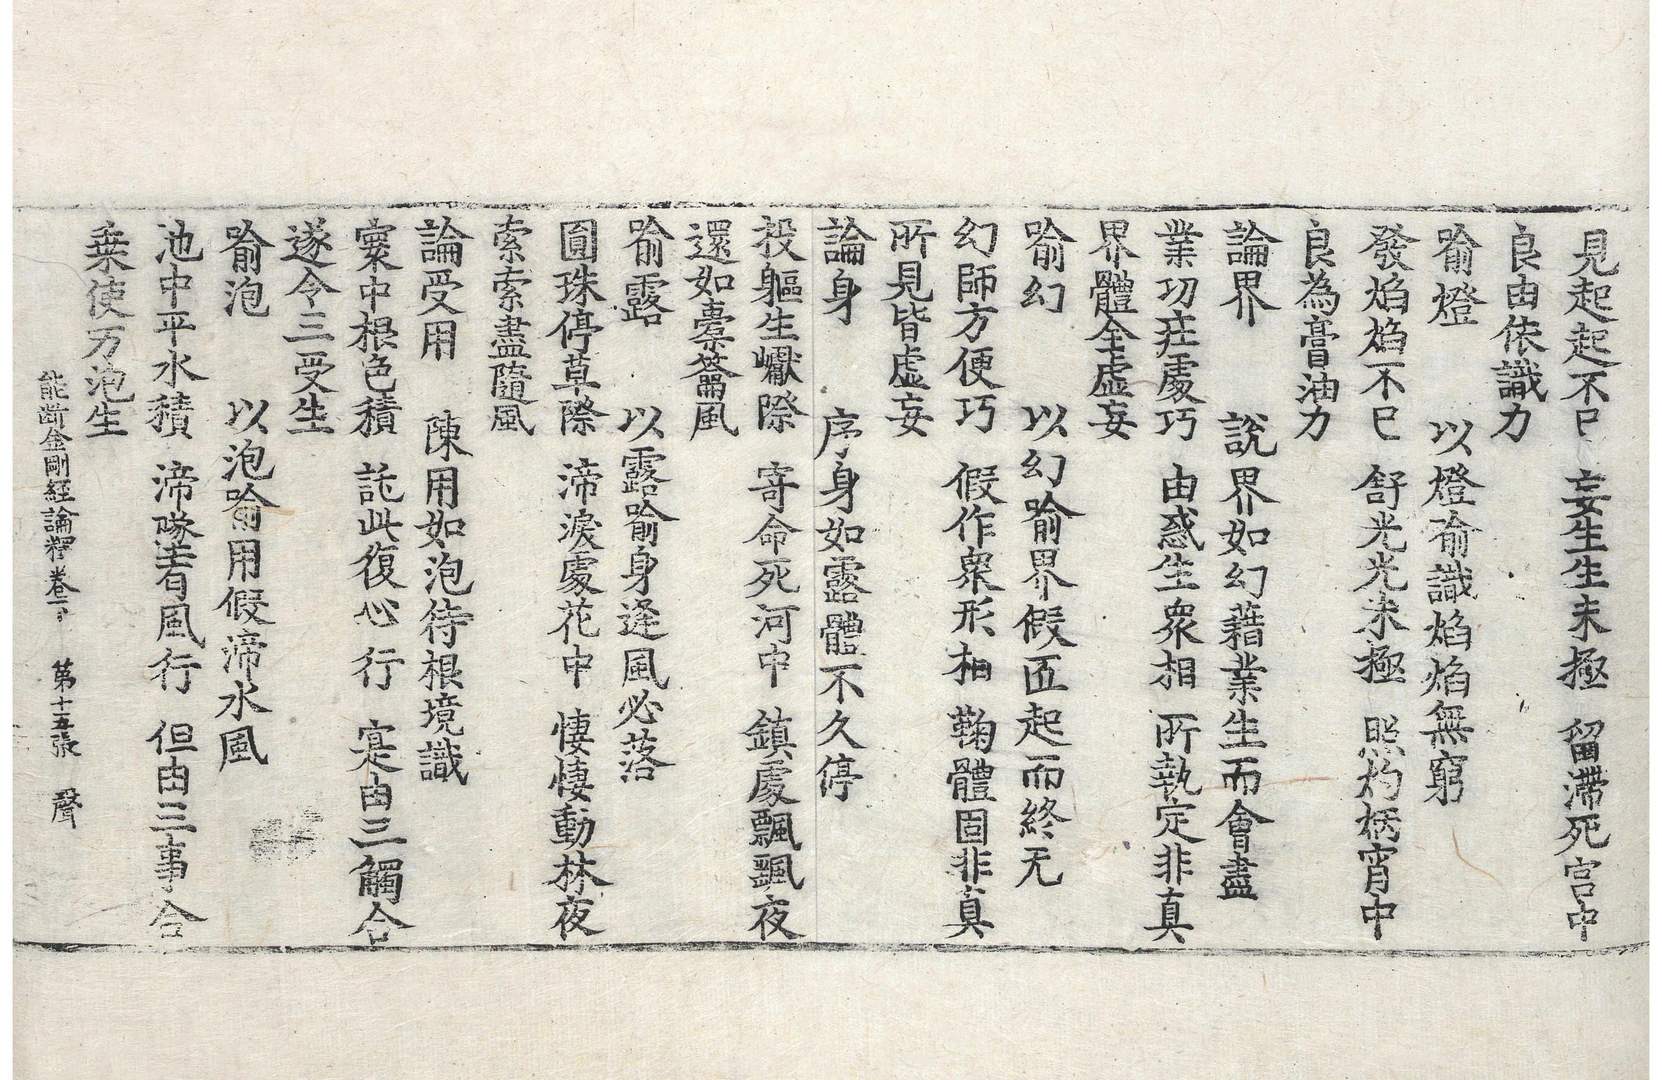 見起起不已 妄生生未極 留滯死宮中
良由依識力
喻燈 以燈喻識焰焰無窮
發焰焰不已 舒光光未極 照灼柄宵中
良為膏油力
論界 說界如幻藉業生而會盡
業切在處巧 由惑生衆相 所執定非真
界體全虛妄
喻幻 以幻喻界假匠起而終无
幻師方便巧 假作衆形相 鞠體固非真
所見皆虛妄
論身 序身如露體不久停
投軀生巘際 寄命死河中 鎮處飄飄夜
還如橐籥風
喻露 以露喻身逢風必落
圓珠停草際 渧淚處花中 悽悽動林夜
索索盡隨風
論受用 陳用如泡待根境識
窠中根色積 託此復心行 寔由三觸合
遂令三受生
喻泡 以泡喻用假渧水風
池中平水積 渧墜著風行 但由三事合
乗使万泡生
能斷金剛經論釋卷下 第十五張 聲